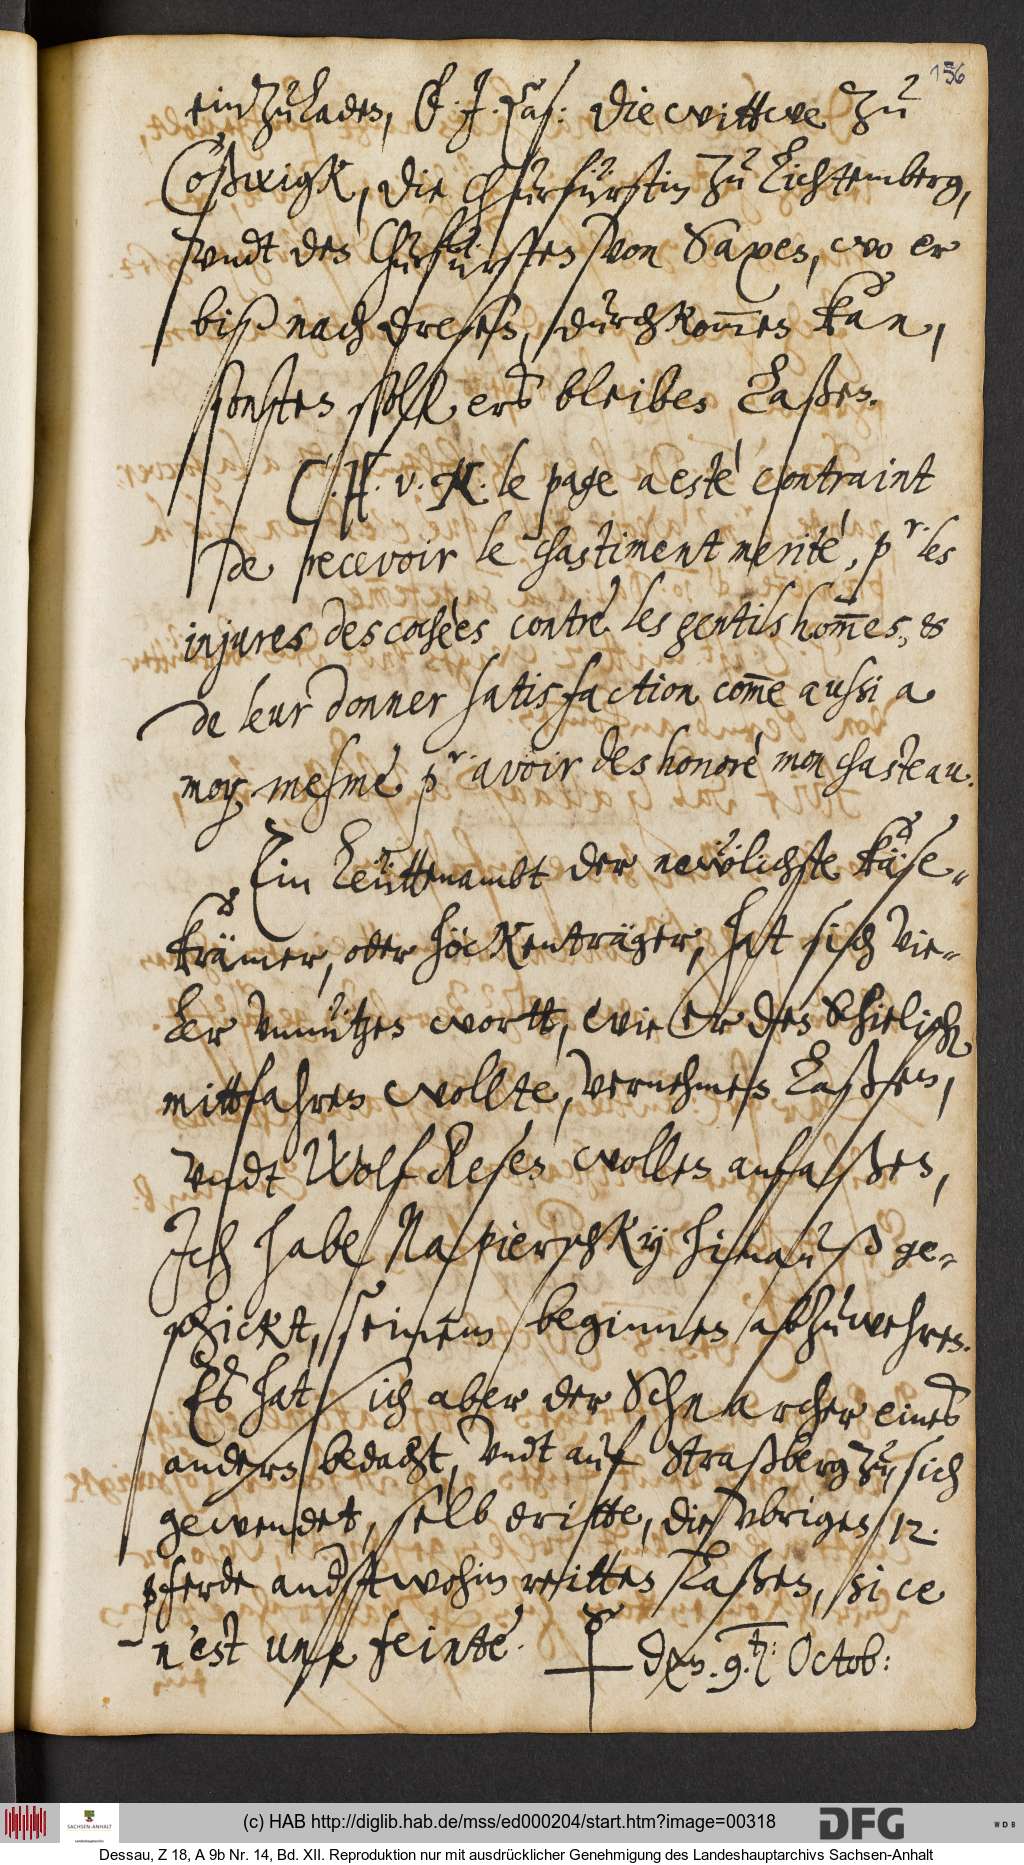 156
einzuladen, C. J. Cas: die wittwe zu
Coßwigk, die Churfürstin zu Lichtemberg,
vndt den Churfürsten von Saxen, wo er
biß nach Dresen, durchkom̅en kan,
sonsten soll ers bleiben laßen.
C. H. v. K. le page a esté contraint
de recevoir le chastiment merité, pr. les
injures descochées contre les gentilshom̅es, &
de leur donner satisfaction com̅e aussi a
moy mesme pr. avoir deshonoré mon chasteau.
Ein Leüttenambt der newlichste käse-
krämer, oder höckenträger, hat sich vie-
ler vnnützen wortt, wie er den Schielisch
mittfahren wollte, vernehmen laßen,
vndt Wolf Resen wollen anfaßen,
Ich habe Napierschky hinauß ge-
schickt, seinem beginnen abzuwehren.
Es hat sich aber der Schnarcher eines
andern bedacht, vndt auf Straßberg zu, sich
gewendet, selb dritte, die vbrigen 12.
pferde anderstwohin reitten laßen, si ce
n'est une feinte.
den. 9. Octob:
(c) HAB http://diglib.hab.de/mss/ed000204/start.htm?image=00318
SACHSEN-ANHALT
DFG
WDB
Dessau, Z 18, A 9b Nr. 14, Bd. XII. Reproduktion nur mit ausdrücklicher Genehmigung des Landeshauptarchivs Sachsen-Anhalt